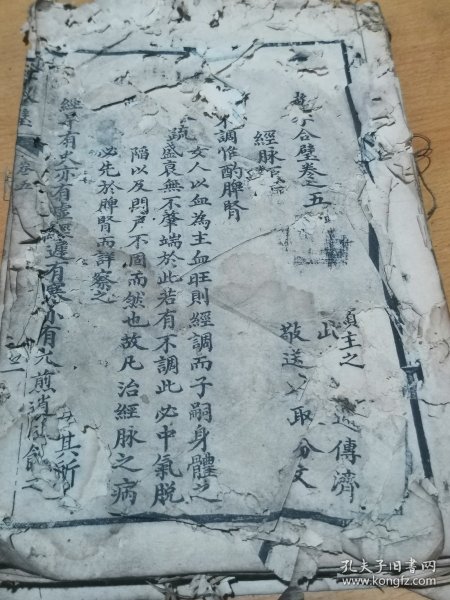 合壁卷之五
主之
傳濟
敬送 取分文
經脈
調惟酌脾腎
女人以血為主血旺則經調而子嗣身體之
盛衰無不肇端於此若有不調此必中氣脫
陷以及門戶不固而然也故凡治經脈之病
必先於脾腎而詳察之
經早有火亦有 經遲有寒亦有火 其所
卷五
孔夫子旧书网
www.kongfz.com